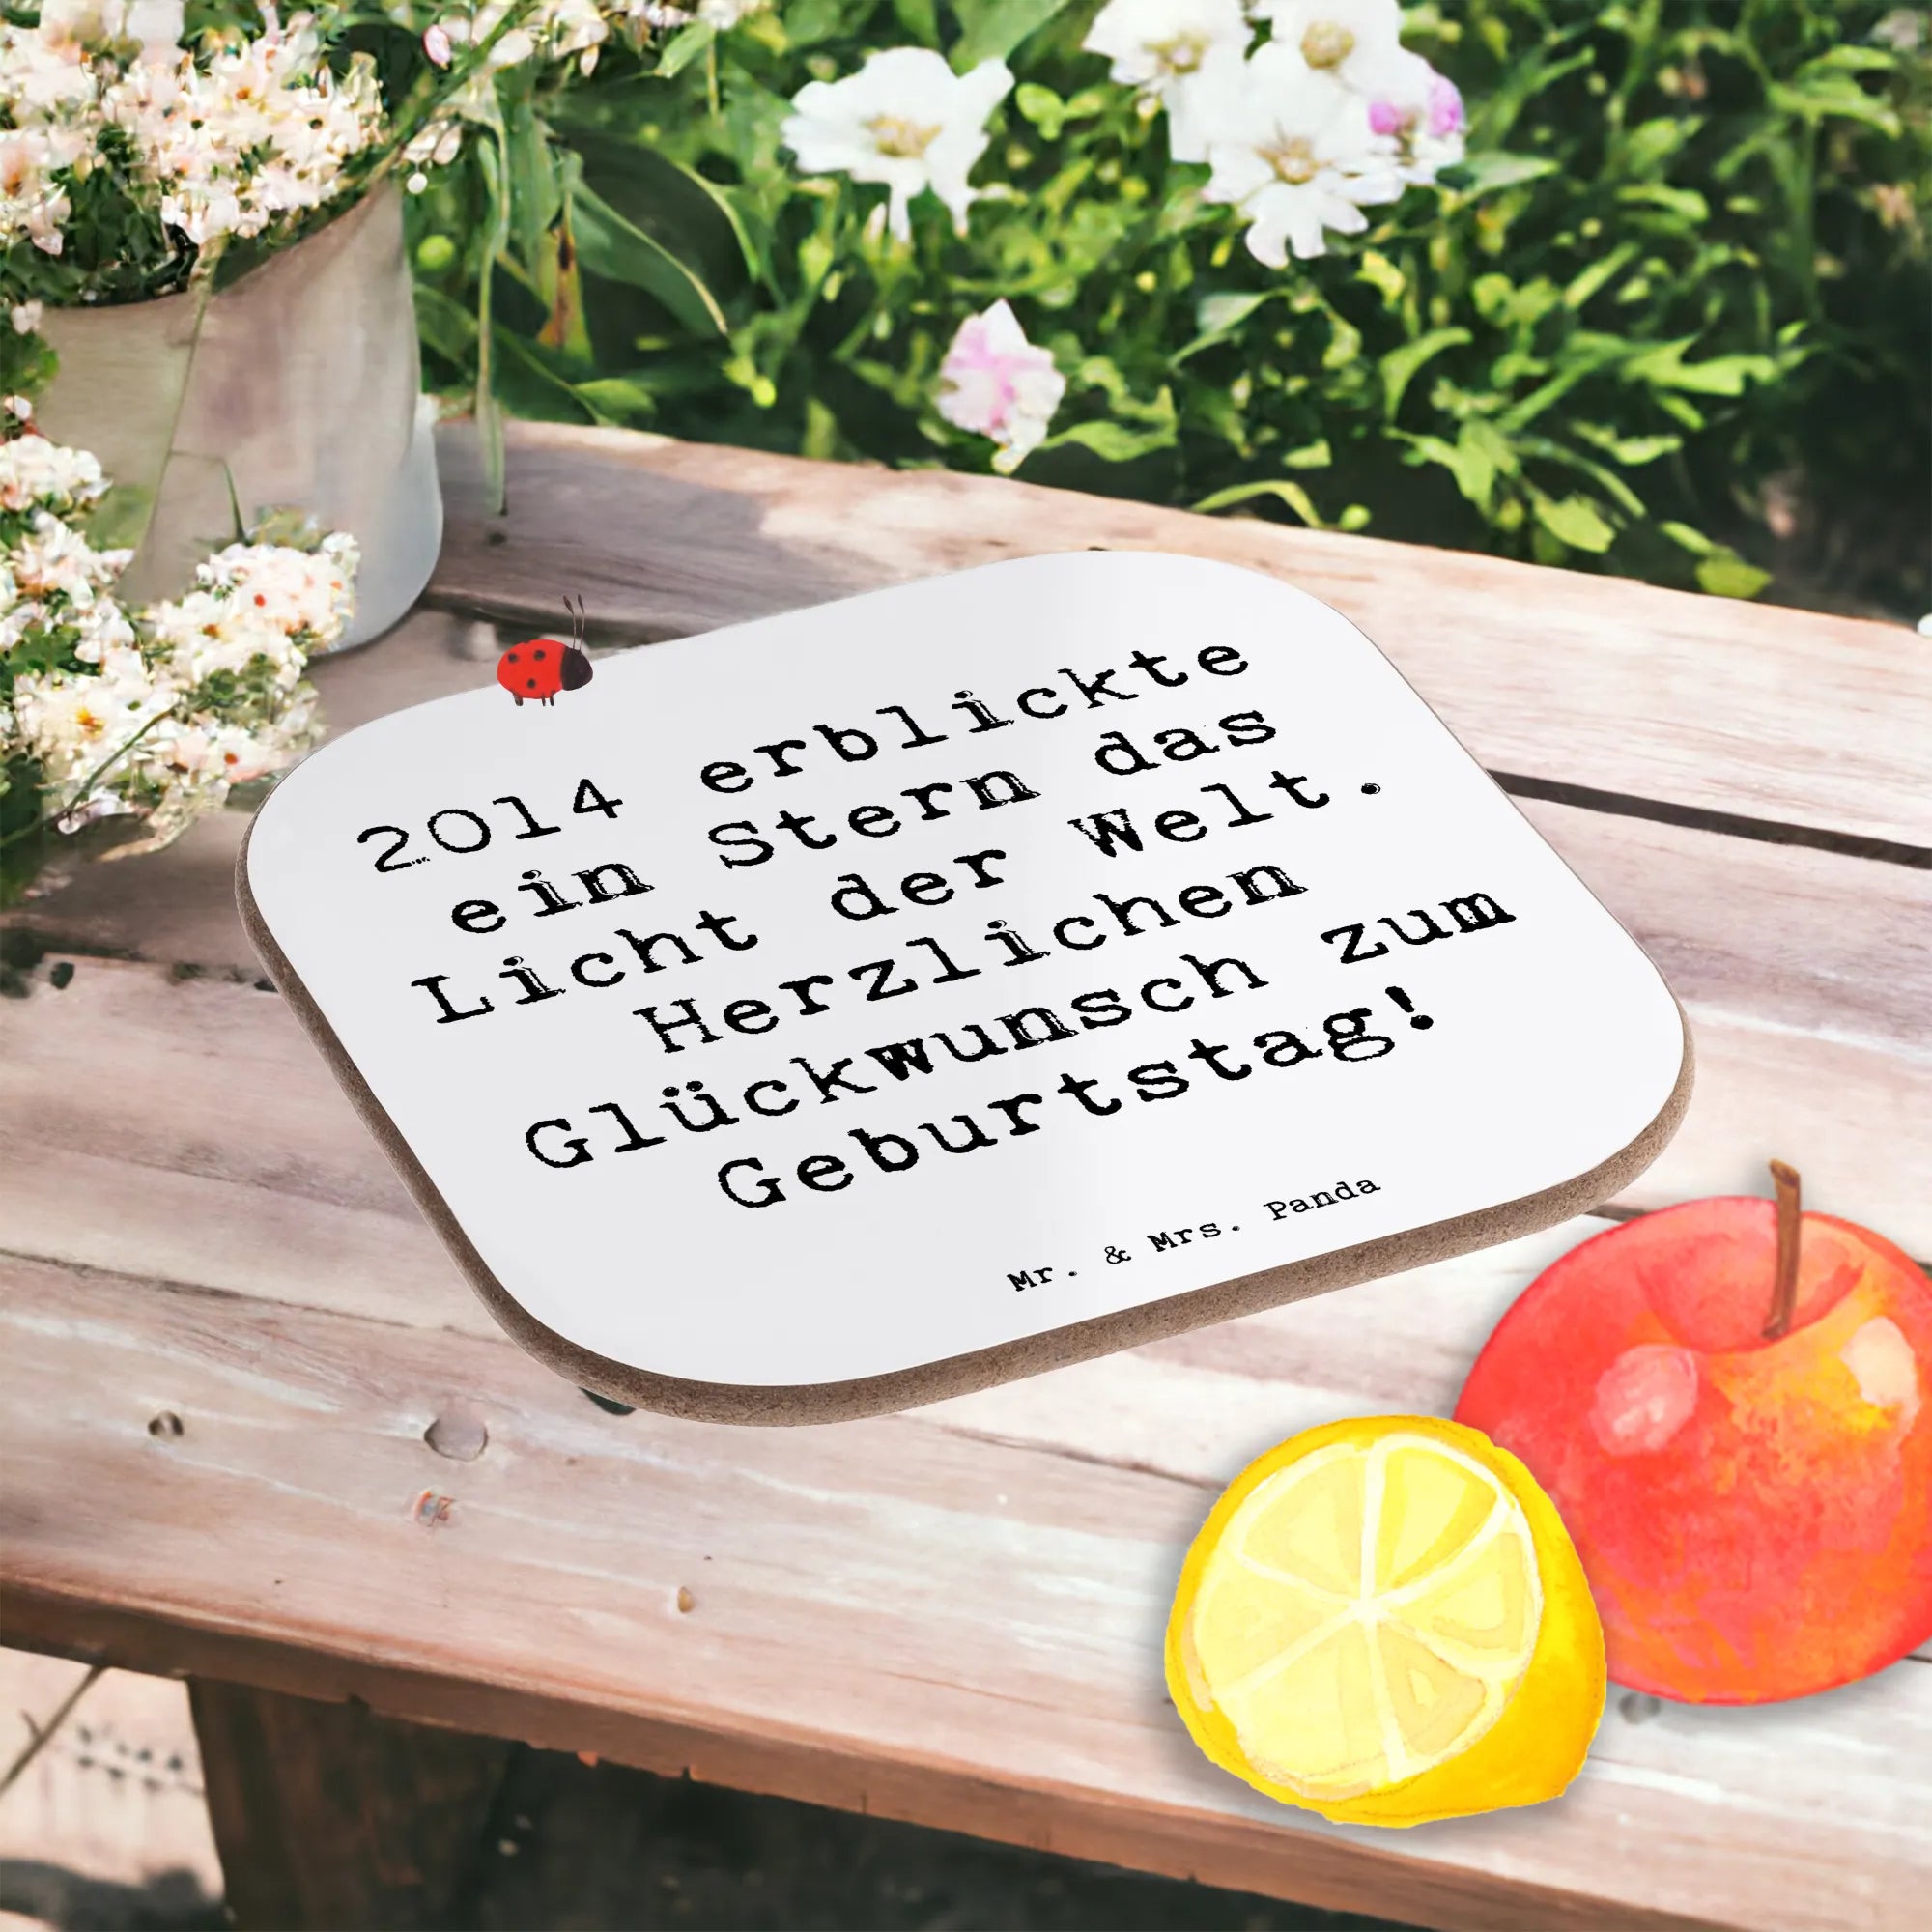 2014 erblickte
ein Stern das
Licht der Welt.
Herzlichen
Glückwunsch zum
Geburtstag!
Mr. & Mrs. Panda